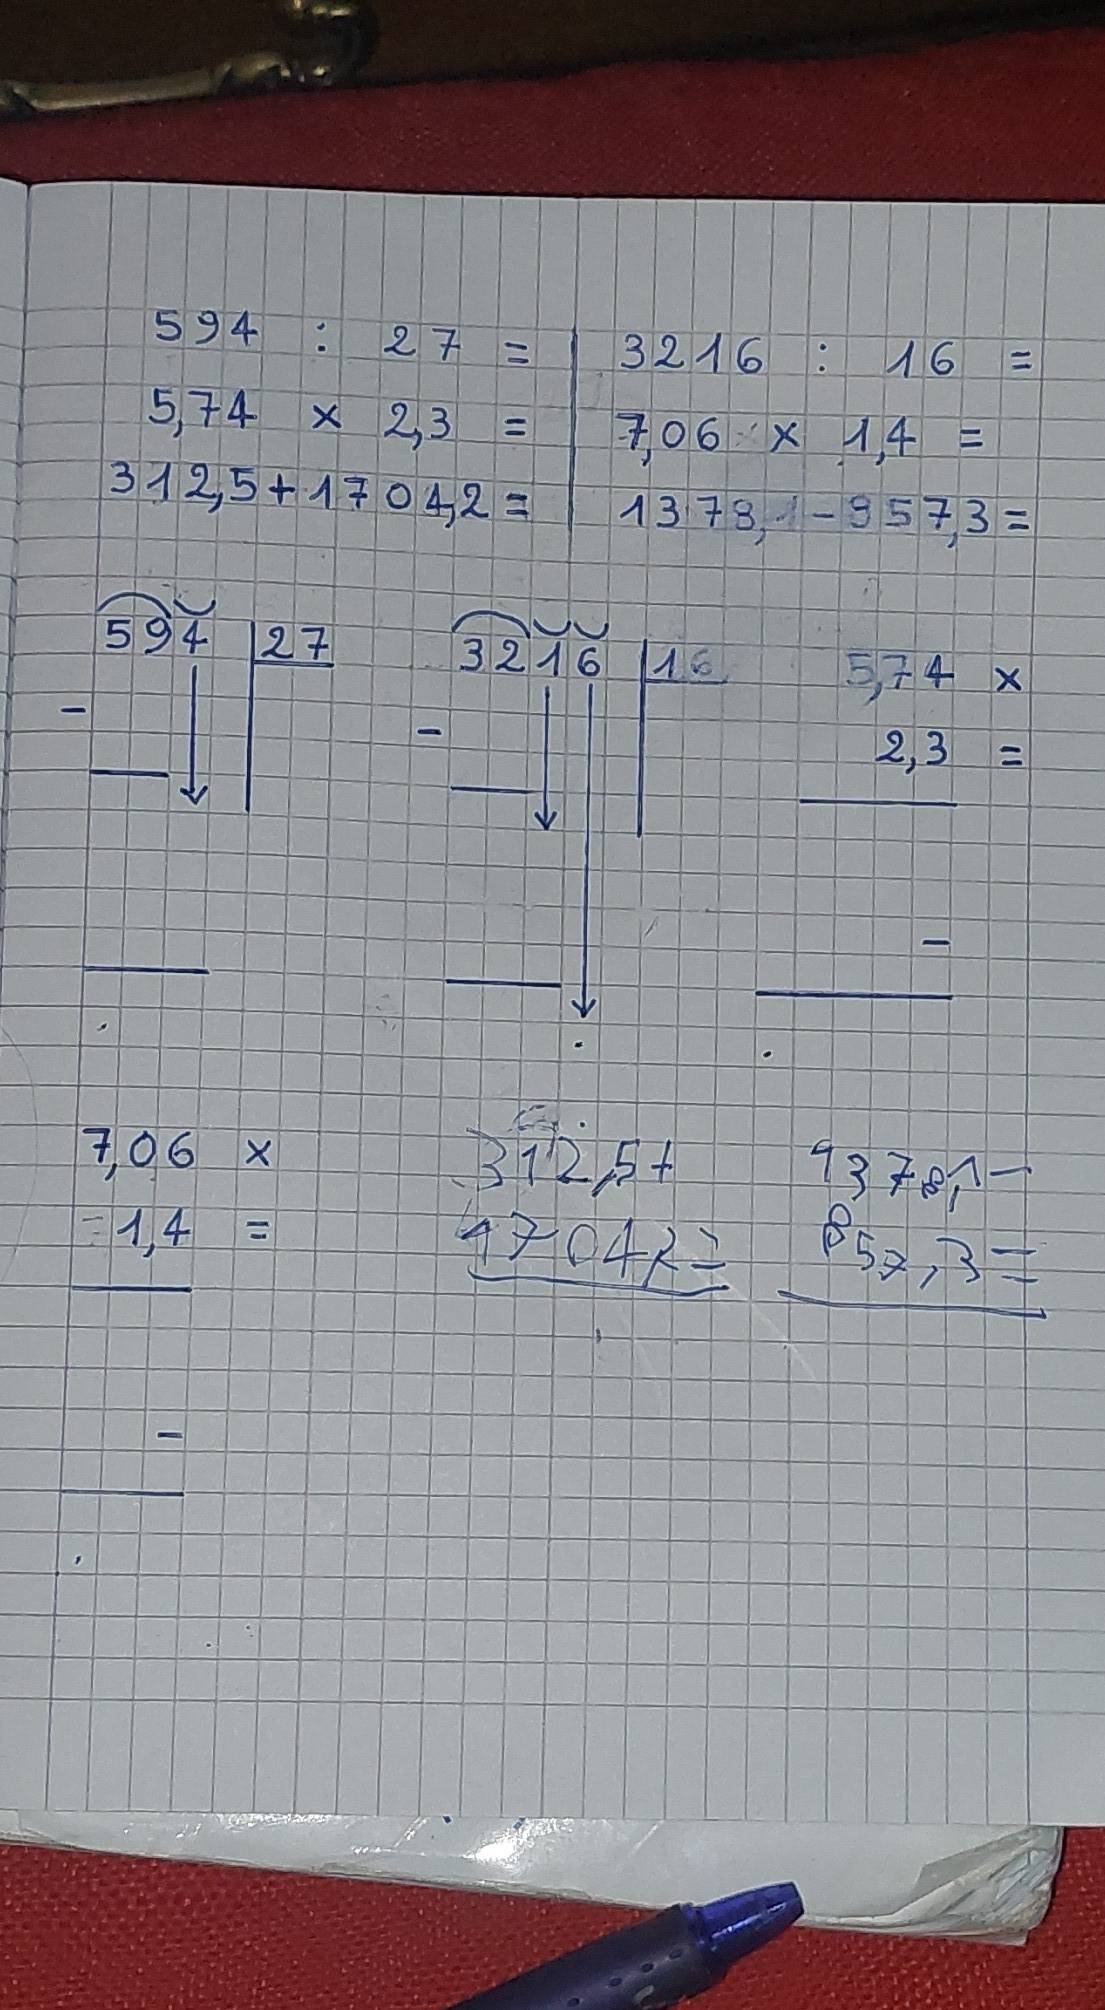 594 : 27 = | 3216 : 16 =
5,74 x 2,3 = | 7,06 x 1,4 =
312,5+1704,2= | 1378,1-857,3=
594 | 27
3216 | 16
5,74 x
2,3 =
7,06 x
1,4 =
312,5+
1704,2=
1378,1-
857,3=